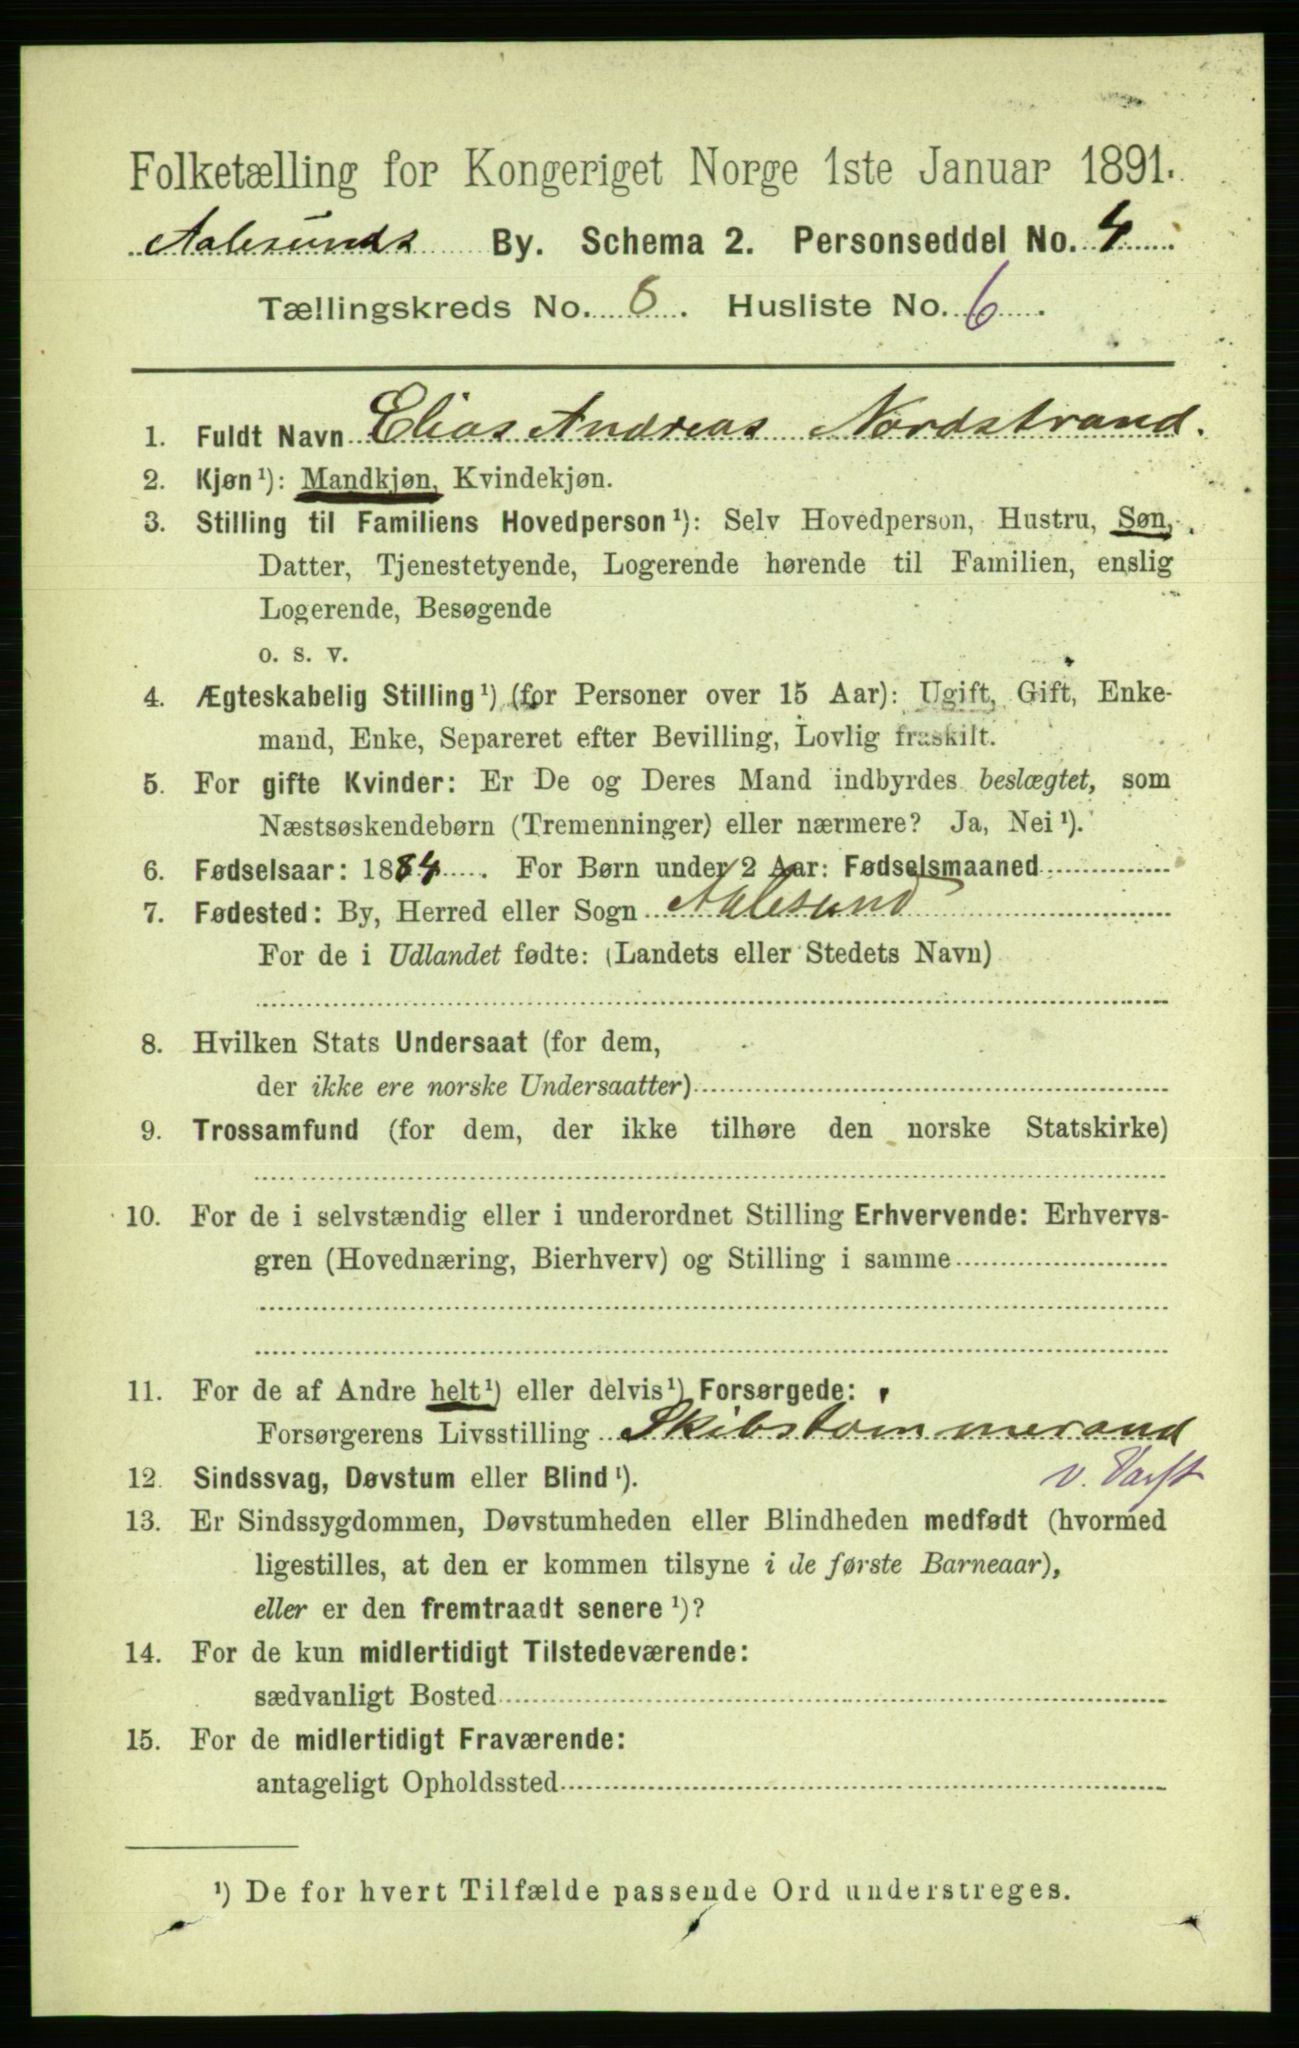 Folketælling for Kongeriget Norge 1ste Januar 1891.
Aalesunds By. Schema 2. Personseddel No. 4
Tællingskreds No. 8. Husliste No. 6.
1. Fuldt Navn Elias Andreas Nordstrand.
2. Kjøn¹): Mandkjøn, Kvindekjøn.
3. Stilling til Familiens Hovedperson¹): Selv Hovedperson, Hustru, Søn,
Datter, Tjenestetyende, Logerende hørende til Familien, enslig
Logerende, Besøgende
o. s. v.
4. Ægteskabelig Stilling¹) (for Personer over 15 Aar): Ugift, Gift, Enke-
mand, Enke, Separeret efter Bevilling, Lovlig fraskilt.
5. For gifte Kvinder: Er De og Deres Mand indbyrdes beslægtet, som
Næstsøskendebørn (Tremenninger) eller nærmere? Ja, Nei¹).
6. Fødselsaar: 1884. For Børn under 2 Aar: Fødselsmaaned
7. Fødested: By, Herred eller Sogn Aalesund
For de i Udlandet fødte: (Landets eller Stedets Navn)
8. Hvilken Stats Undersaat (for dem,
der ikke ere norske Undersaatter)
9. Trossamfund (for dem, der ikke tilhøre den norske Statskirke)
10. For de i selvstændig eller i underordnet Stilling Erhvervende: Erhvervs-
gren (Hovednæring, Bierhverv) og Stilling i samme
11. For de af Andre helt¹) eller delvis¹) Forsørgede:
Forsørgerens Livsstilling Skibstømmermand
v. Varft
12. Sindssvag, Døvstum eller Blind¹).
13. Er Sindssygdommen, Døvstumheden eller Blindheden medfødt (hvormed
ligestilles, at den er kommen tilsyne i de første Barneaar),
eller er den fremtraadt senere¹)?
14. For de kun midlertidigt Tilstedeværende:
sædvanligt Bosted
15. For de midlertidigt Fraværende:
antageligt Opholdssted
¹) De for hvert Tilfælde passende Ord understreges.